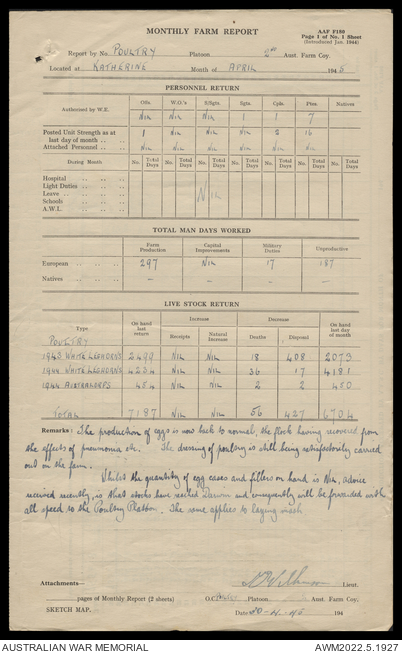 MONTHLY FARM REPORT
AAF F180
Page 1 of No. 1 Sheet
(Introduced Jan. 1944)
Report by No. POULTRY Platoon 2nd Aust. Farm Coy.
Located at KATHERINE Month of APRIL 1945
PERSONNEL RETURN
Offs. W.O.'s S/Sgts. Sgts. Cpls. Ptes. Natives
Authorized by W.E. Nil Nil Nil 1 1 7
Posted Unit Strength as at last day of month 1 Nil Nil Nil 2 16
Attached Personnel Nil Nil Nil Nil Nil Nil
During Month No. Total Days No. Total Days No. Total Days No. Total Days No. Total Days No. Total Days No. Total Days
Hospital
Light Duties
Leave Nil
Schools
A.W.L.
TOTAL MAN DAYS WORKED
Farm Production Capital Improvements Military Duties Unproductive
European 297 Nil 17 187
Natives – – – –
LIVE STOCK RETURN
Type On hand last return Increase Decrease On hand last day of month
Receipts Natural Increase Deaths Disposal
POULTRY
1943 WHITE LEGHORNS 2499 Nil Nil 18 408 2073
1944 WHITE LEGHORNS 4234 Nil Nil 36 17 4181
1944 AUSTRALORPS 454 Nil Nil 2 2 450
TOTAL 7187 Nil Nil 56 427 6704
Remarks: The production of eggs is now back to normal, the flock having recovered from
the effects of pneumonia etc. The dressing of poultry is still being satisfactorily carried
out on the farm.
Whilst the quantity of egg cases and fillers on hand is Nil, advice
received recently, is that stocks have reached Darwin and consequently will be forwarded with
all speed to the Poultry Platoon. The same applies to laying mash
Attachments—
Lieut.
pages of Monthly Report (2 sheets) O.C. Platoon Aust. Farm Coy.
SKETCH MAP. Date 30-4-45 194
AUSTRALIAN WAR MEMORIAL
AWM2022.5.1927